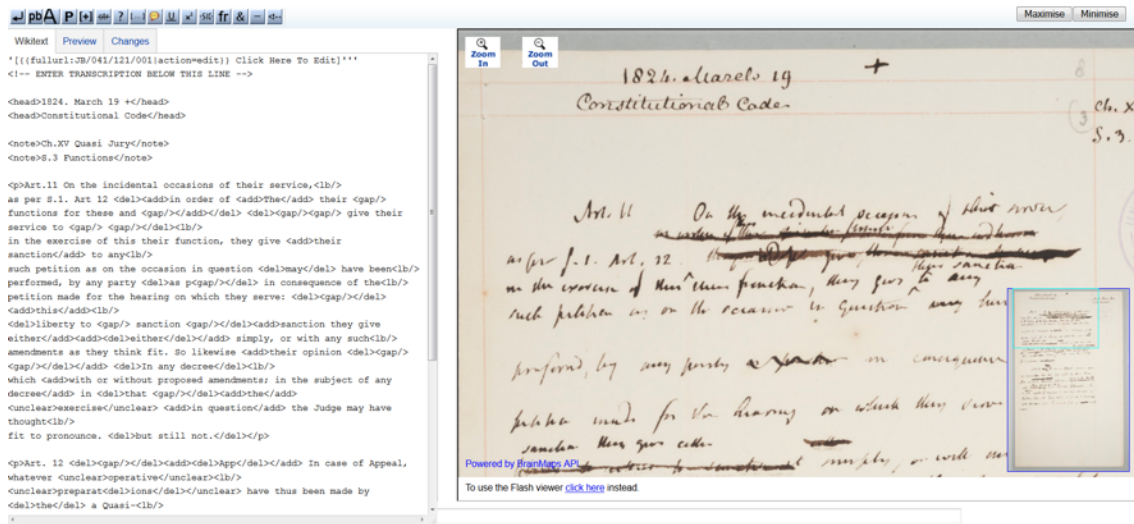 Maximise Minimise
Wikitext Preview Changes
'[{{fullurl:JB/041/121/001|action=edit}} Click Here To Edit]'''
<!-- ENTER TRANSCRIPTION BELOW THIS LINE -->
<head>1824. March 19 +</head>
<head>Constitutional Code</head>
<note>Ch.XV Quasi Jury</note>
<note>S.3 Functions</note>
<p>Art.11 On the incidental occasions of their service,<lb/>
as per S.1. Art 12 <del><add>in order of <add>The</add> their <gap/>
functions for these and <gap/></add></del> <del><gap/><gap/> give their
service to <gap/> <gap/></del><lb/>
in the exercise of this their function, they give <add>their
sanction</add> to any<lb/>
such petition as on the occasion in question <del>may</del> have been<lb/>
performed, by any party <del>as p<gap/></del> in consequence of the<lb/>
petition made for the hearing on which they serve: <del><gap/></del>
<add>this</add><lb/>
<del>liberty to <gap/> sanction <gap/></del><add>sanction they give
either</add><add><del>either</del></add> simply, or with any such<lb/>
amendments as they think fit. So likewise <add>their opinion <del><gap/>
<gap/></del></add> <del>In any decree</del><lb/>
which <add>with or without proposed amendments; in the subject of any
decree</add> in <del>that <gap/></del><add>the</add>
<unclear>exercise</unclear> <add>in question</add> the Judge may have
thought<lb/>
fit to pronounce. <del>but still not.</del></p>
<p>Art. 12 <del><gap/></del><add><del>App</del></add> In case of Appeal,
whatever <unclear>operative</unclear><lb/>
<unclear>preparat<del>ions</del></unclear> have thus been made by
<del>the</del> a Quasi-<lb/>
Zoom In
Zoom Out
1824. March 19 +
Constitutional Code
Ch. X
3
S. 3.
Art. 11 On the incidental occasions of their service,
as per S. 1. Art. 12.
their sanction
in the exercise of this their function, they give to any
such petition as on the occasion in question
preferred, by any party in consequence
petition made for the hearing on which they serve
sanction they give either
simply, or with
Powered by BrainMaps API
To use the Flash viewer click here instead.